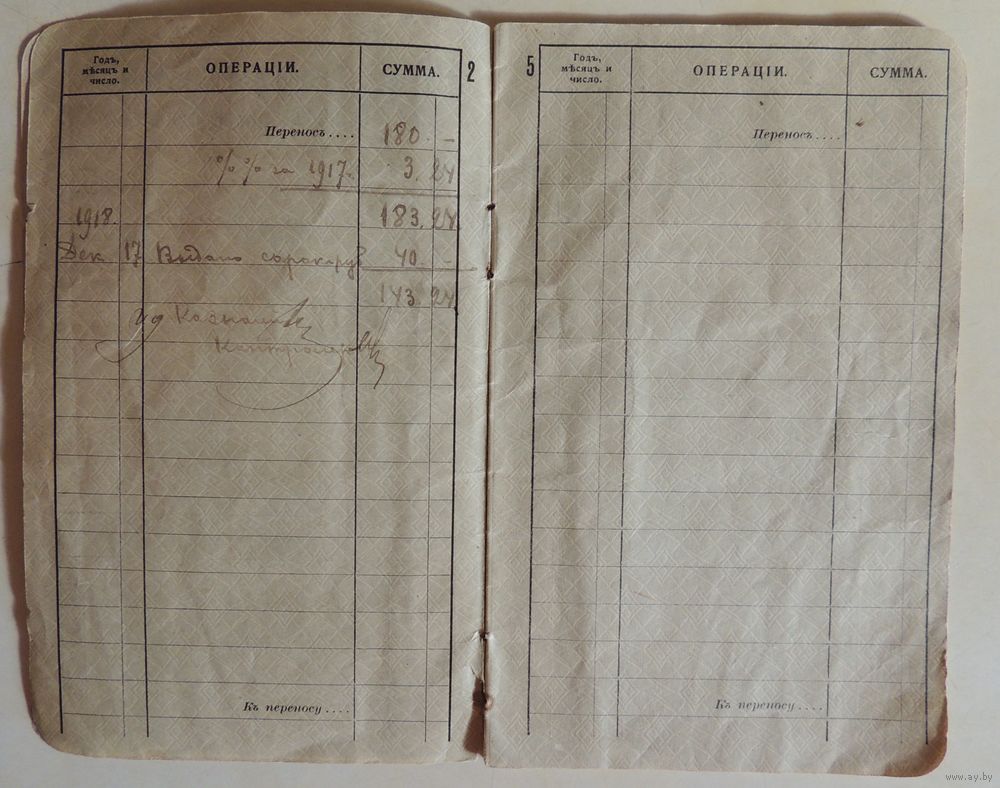 Годъ,
мѣсяцъ и
число.
ОПЕРАЦІИ.
СУММА.
2
Переносъ.... 180. –
%% за 1917. 3. 24
1918. 183. 24
Дек 17 Выдано сорок руб 40. –
143. 24
ид Казначея
Контролер
Къ переносу....
5
Годъ,
мѣсяцъ и
число.
ОПЕРАЦІИ.
СУММА.
Переносъ....
Къ переносу....
www.ay.by